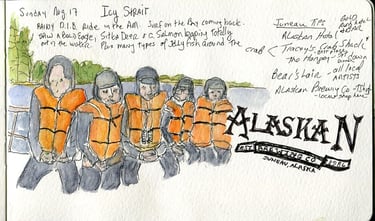 Sunday Aug 17 Icy Strait
Rainy D.I.B. Ride in the A.M. Surf on the way coming back.
Saw a Bald Eagle, Sitka Deer & a Salmon leaping totally
out of the water. Plus many types of Jelly fish around the
Juneau Tips
Alaskan Hotel
crab Tracey's Crab Shack
the Hangar
Bear's Lair - all local
artists
Alaskan Brewing Co.
ALASKAN
BREWING CO.
JUNEAU, ALASKA